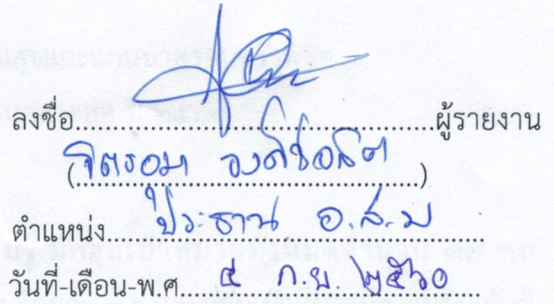 ลงชื่อ........................................ผู้รายงาน
(จิตรอุมา ........................)
ตำแหน่ง.....ประธาน อ.ส.ม...............
วันที่-เดือน-พ.ศ.....๔ ก.ย. ๒๕๖๐.........